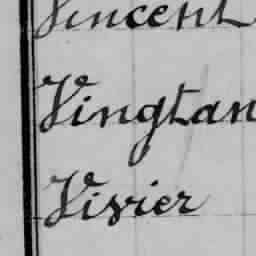 Vincent
Vingtan
Vivier